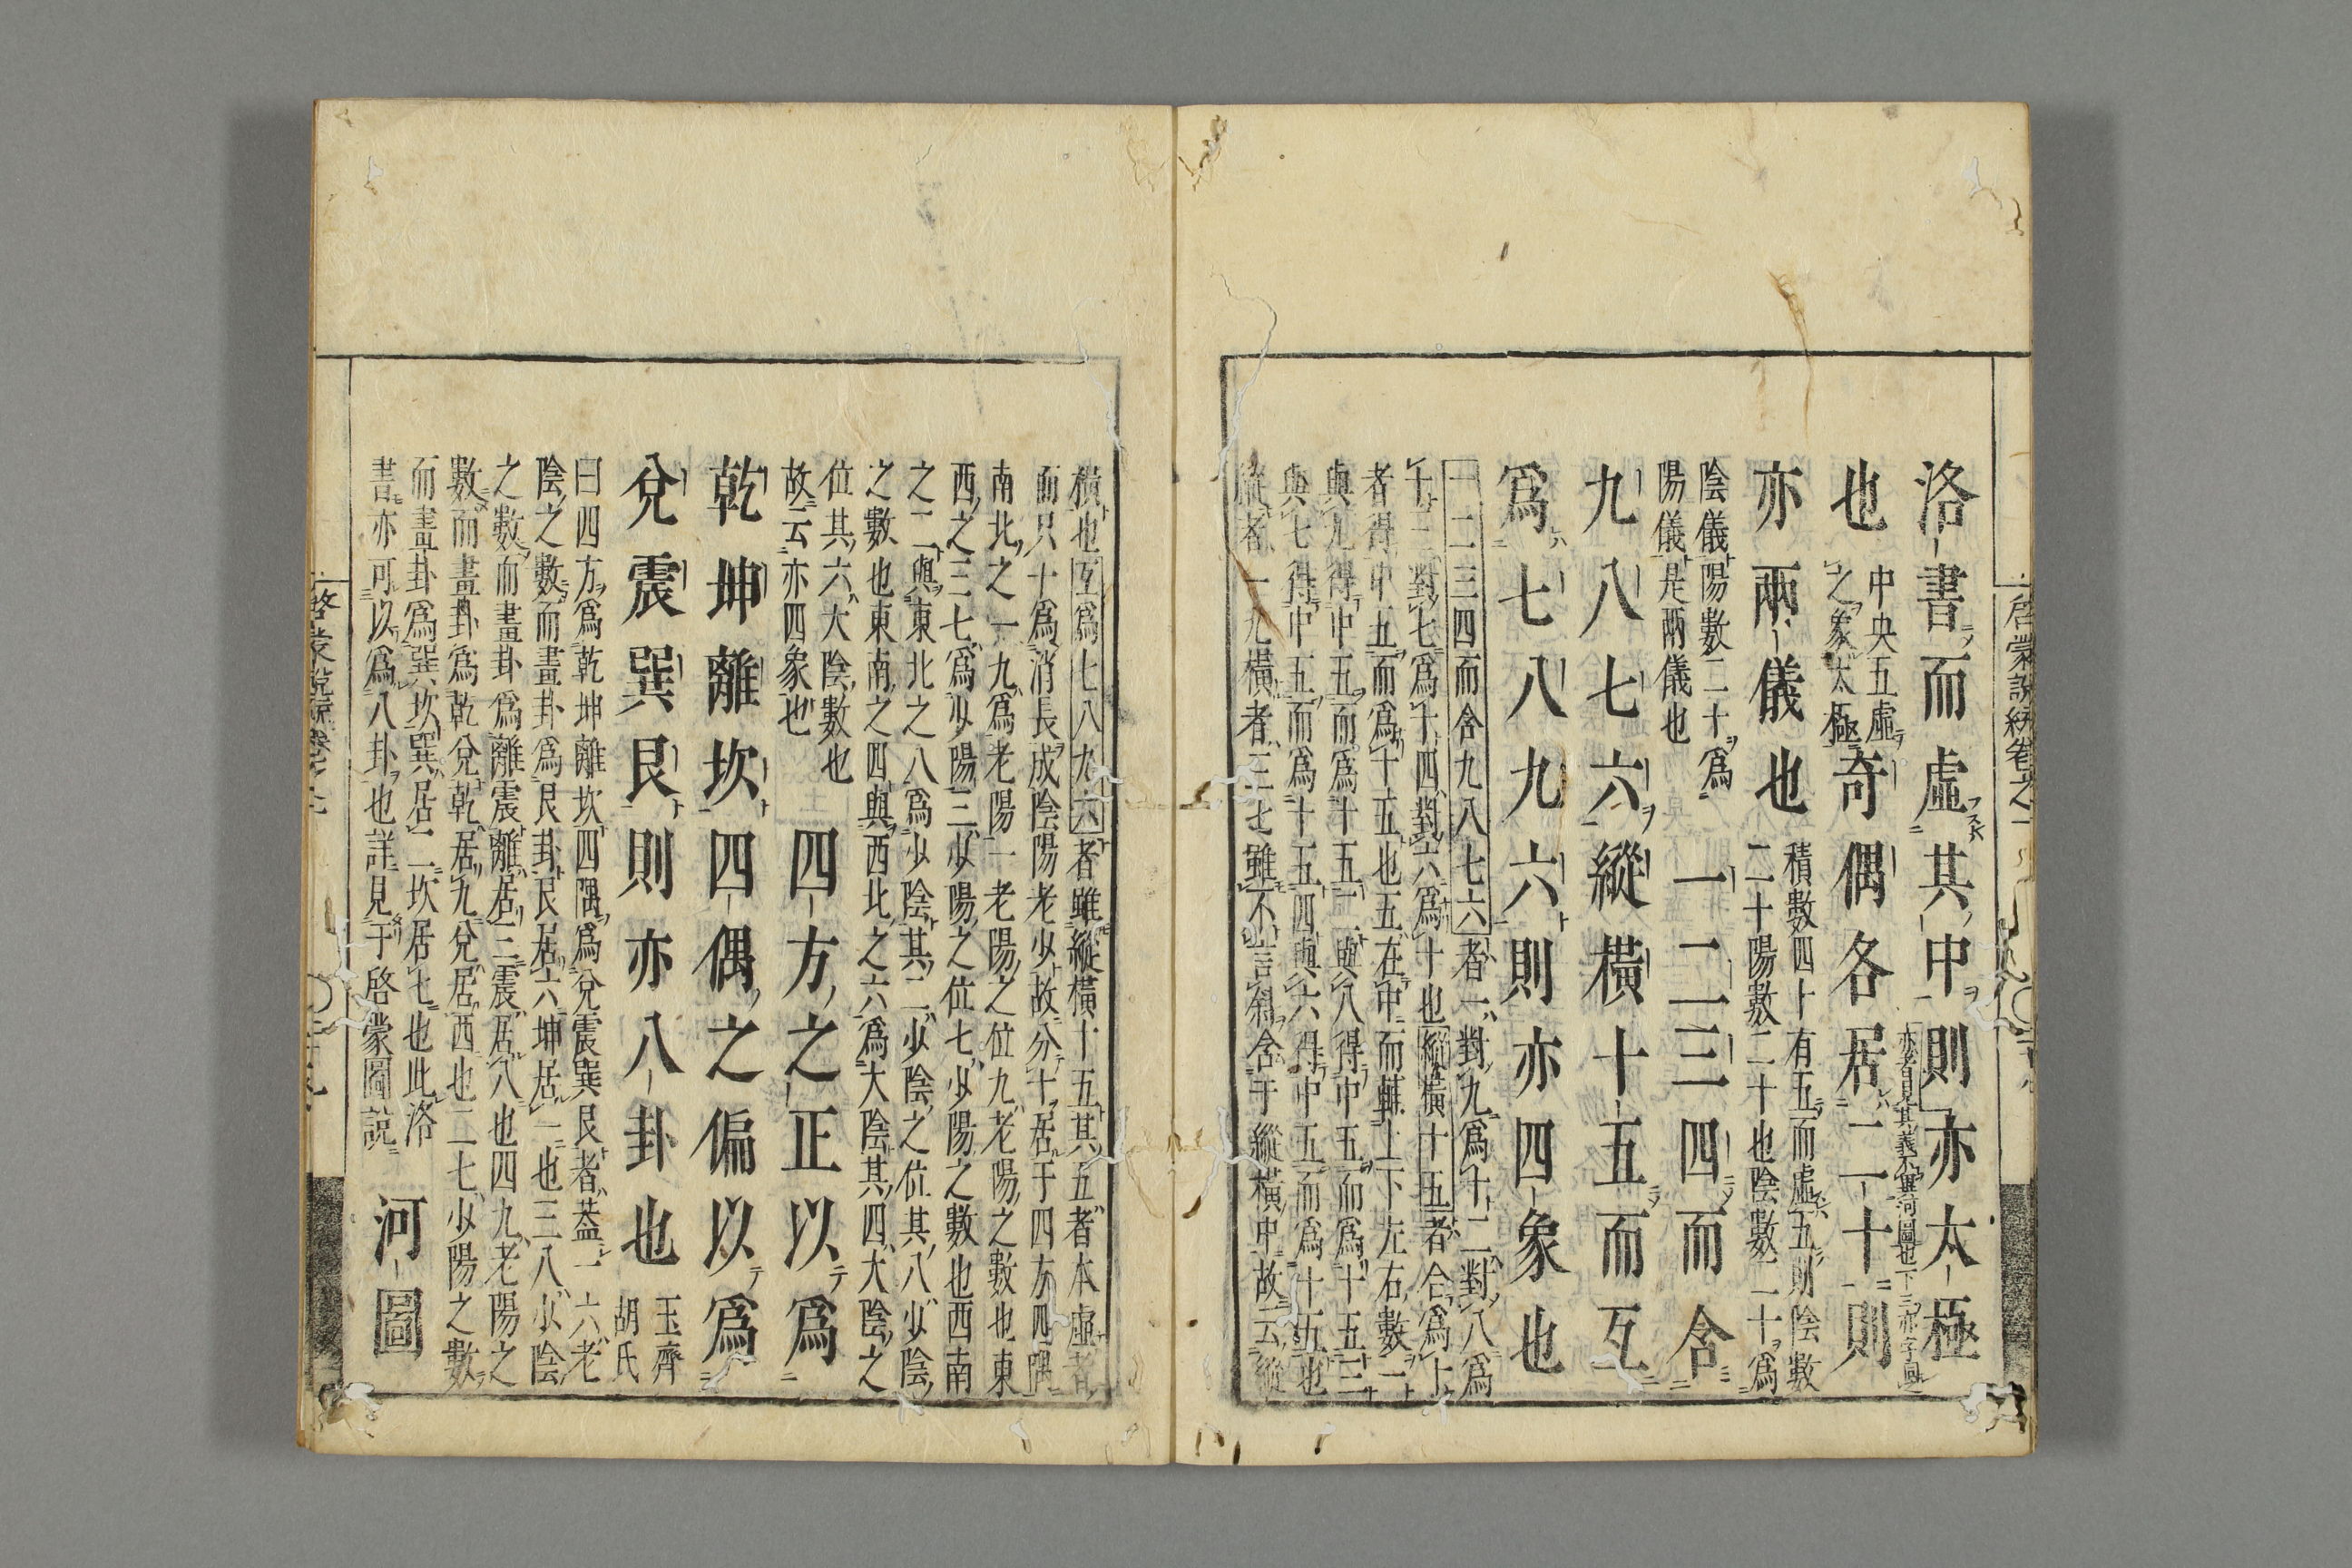 啓蒙説統卷之一
洛書而虛其中則亦太極
亦者見其義不異河圖也下三亦字同
也
中央五虛
之象太極
奇偶各居二十則
亦兩儀也
積數四十有五而虛五則陰數
二十陽數二十也陰數二十爲
陰儀陽數二十爲
陽儀是兩儀也
一二三四而含
九八七六縱橫十五而互
爲七八九六則亦四象也
一二三四而含九八七六者一對九爲十二對八爲
十三對七爲十四對六爲十也縱橫十五者合爲上
者得中五而爲十五也五在中而上下左右數一
與九得中五而爲十五二與八得中五而爲十五三
與七得中五而爲十五四與六得中五而爲十五也
縱者一九橫者三七雖不言斜含于縱橫中故云縱
橫也互爲七八九六者雖縱橫十五其五者本虛者
而只十爲消長成陰陽老少故分十居于四方四隅
南北之一九爲老陽一老陽之位九老陽之數也東
西之三七爲少陽三少陽之位七少陽之數也西南
之二與東北之八爲少陰其二少陰之位其八少陰
之數也東南之四與西北之六爲大陰其四大陰之
位其六大陰數也
故云亦四象也
四方之正以爲
乾坤離坎四偶之偏以爲
兌震巽艮則亦八卦也
玉齋
胡氏
曰四方爲乾坤離坎四隅爲兌震巽艮者蓋一六老
陰之數而畫卦爲艮卦艮居六坤居一也三八少陰
之數而畫卦爲離震離居三震居八也四九老陽之
數而畫卦爲乾兌乾居九兌居西也二七少陽之數
而畫卦爲巽坎巽居二坎居七也此洛
書亦可以爲八卦也詳見于啓蒙圖説
河圖